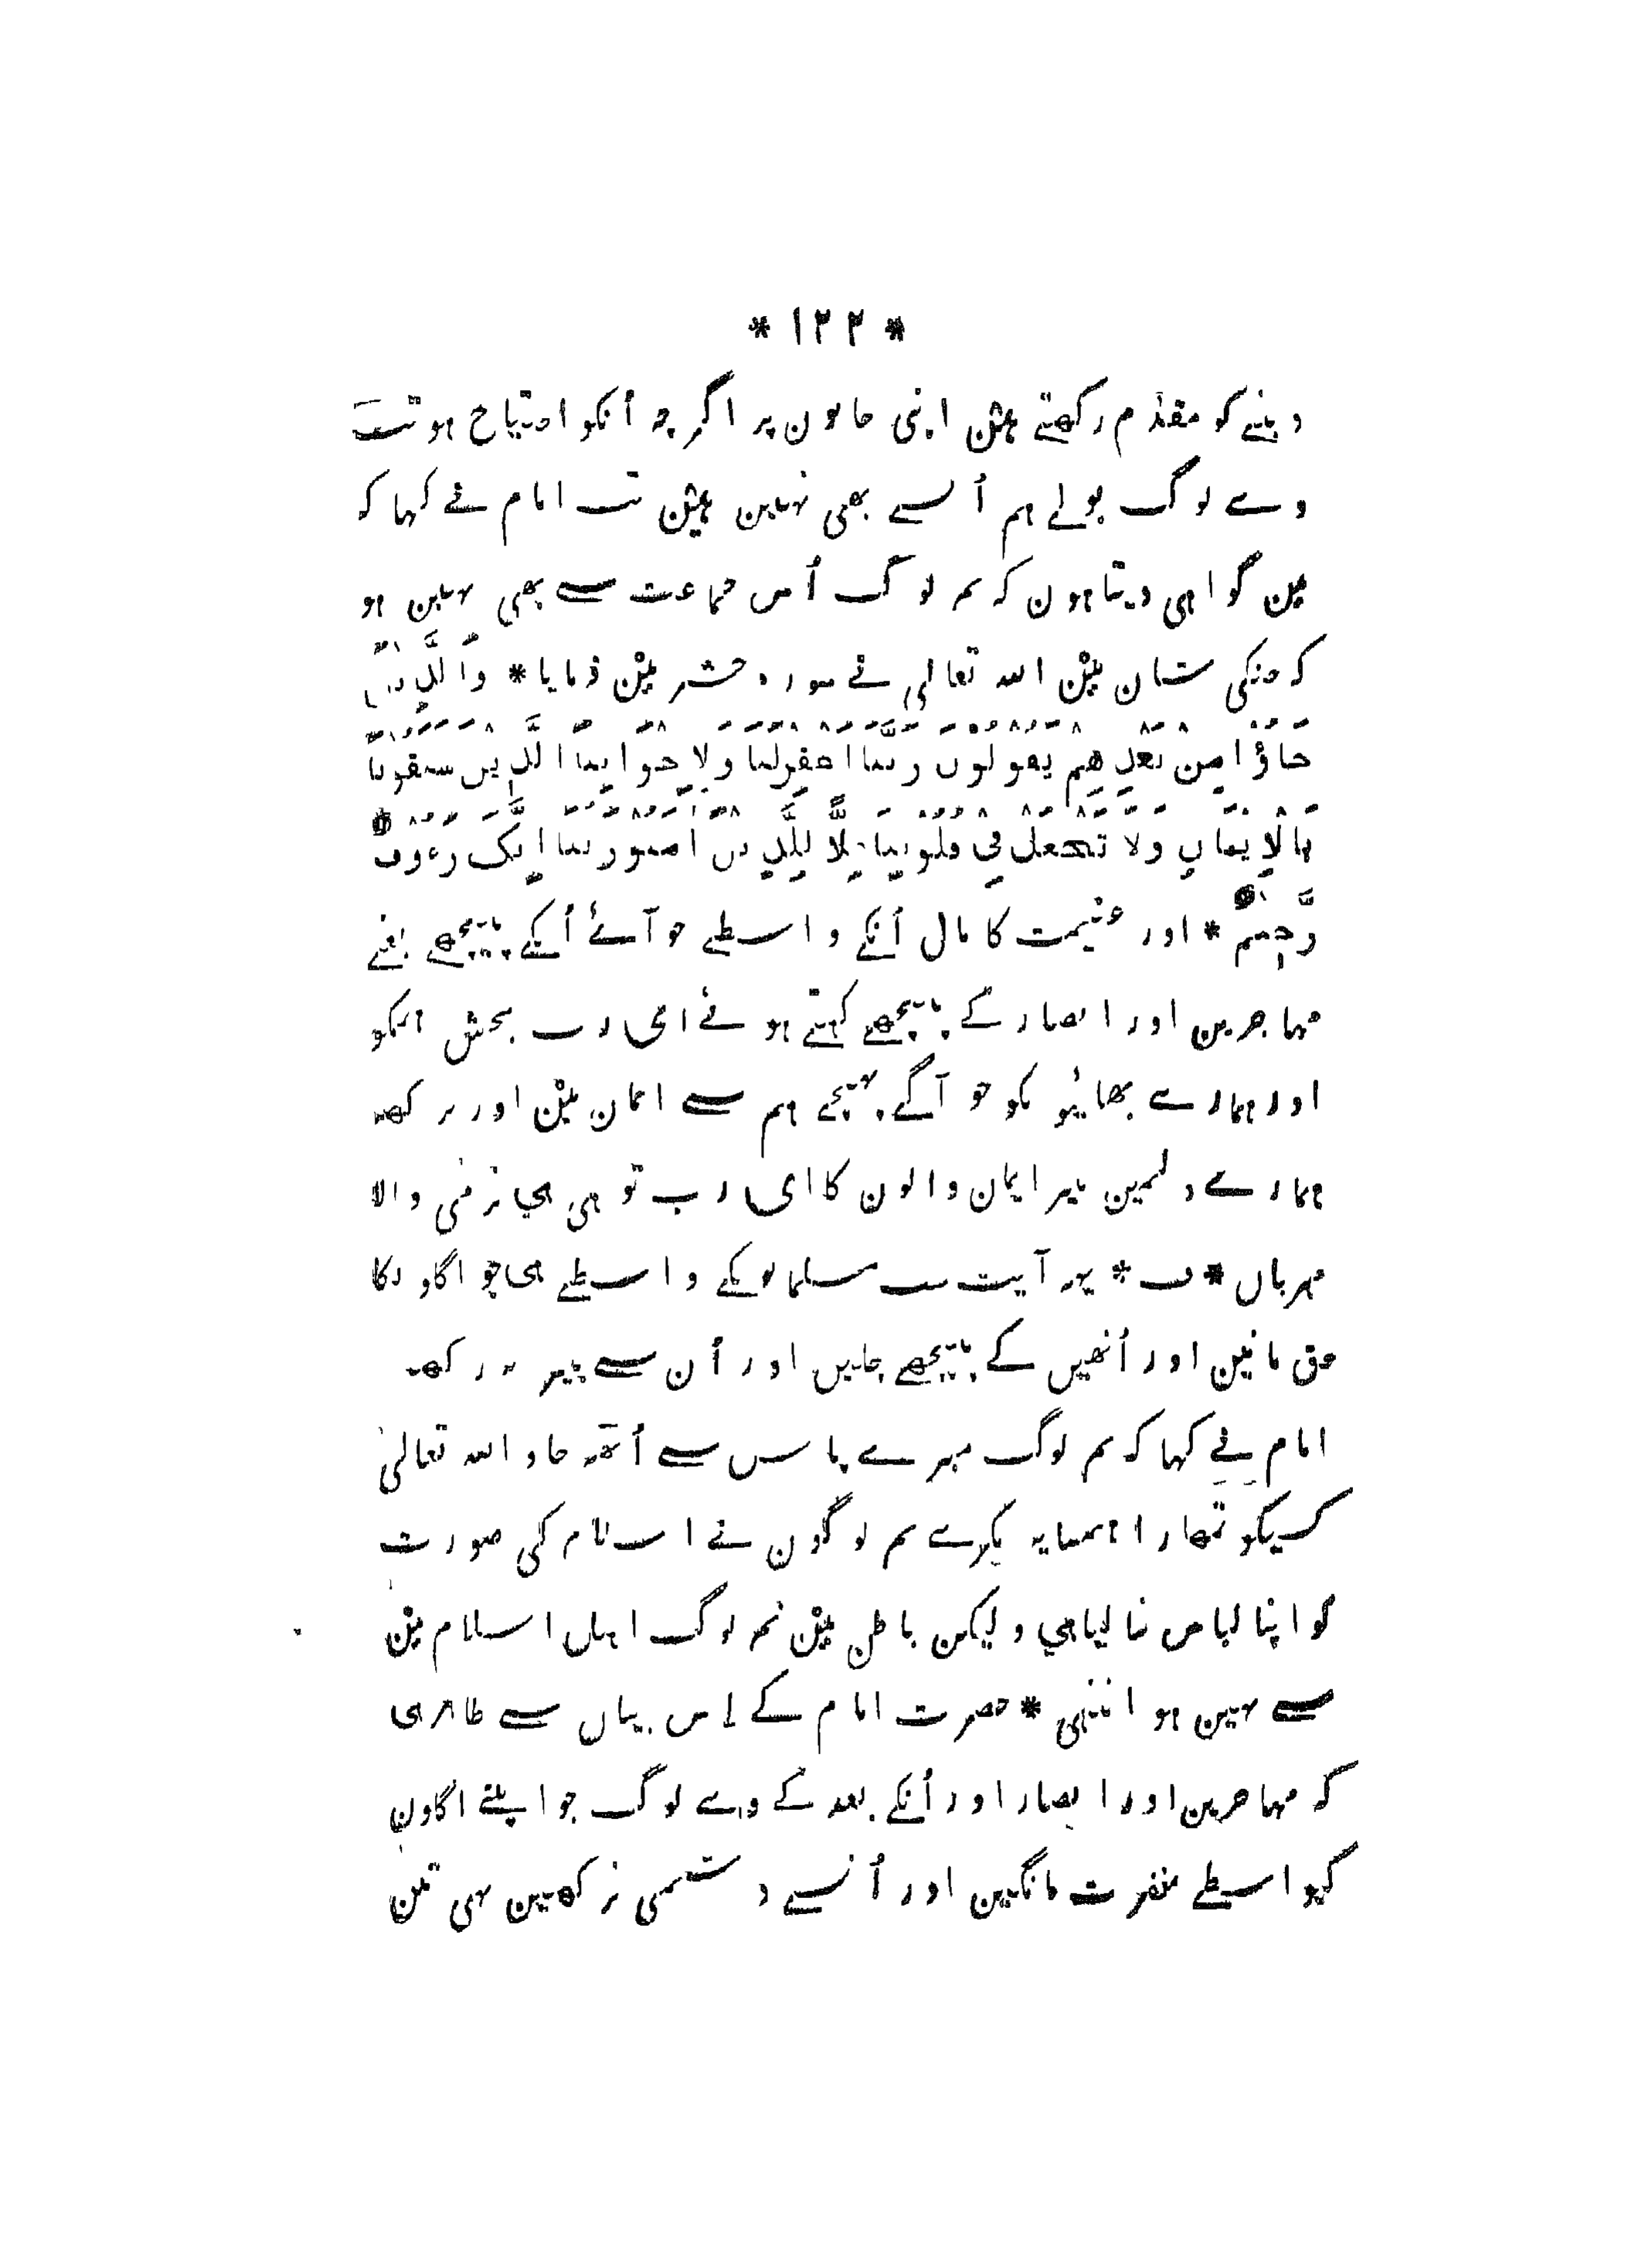 * ۱۲۲ *
دینے کو مقدم رکھتے ھین اپنی جانون پر اگرچہ اُنکو احتیاج ہو تب
وے لوگ بولے ہم اُسے بھی نہین ھین تب امام نے کہا کہ
مین گواہی دیتا ہون کہ تم لوگ اُس جماعت سے بھی نہین ہو
کہ جنکی شان مین اللہ تعالی نے سورہ حشر مین فرمایا * وَالَّذِیْنَ
جَاؤُا مِنْ بَعْدِهِمْ یَقُوْلُوْنَ رَبَّنَا اغْفِرْلَنَا وَلِاِخْوَانِنَا الَّذِیْنَ سَبَقُوْنَا
بِالْاِیْمَانِ وَلَا تَجْعَلْ فِی قُلُوْبِنَا غِلًّا لِلَّذِیْنَ اٰمَنُوْا رَبَّنَا اِنَّکَ رَءُوْفٌ
رَّحِیْمٌ * اور غنیمت کا مال اُنکے واسطے جو آئے اُنکے پیچھے یعنے
مہاجرین اور انصار کے پیچھے کہتے ہوئے ای رب بخش ہمکو
اور ہمارے بھائیونکو جو آگے پہنچے ہم سے ایمان مین اور نہ رکھہ
ہمارے دلمین بیر ایمان والون کا ای رب تو ہی ہی نرمی والا
مہربان * ف * یہہ آیت سب مسلمانونکے واسطے ہی جو اگلونکا
حق مانین اور اُنھیں کے پیچھے چلیں اور اُن سے بیر نہ رکھہ
امام نے کہا کہ تم لوگ میرے پاس سے اُٹھہ جاو اللہ تعالیٰ
کسیکو تمھارا ہمسایہ نکرے تم لوگون نے اسلام کی صورت
کو اپنا لباس بنا لیا ہی ولیکن باطن مین تم لوگ اہل اسلام مین
سے نہین ہو انتہی * حضرت امام کے اس بیان سے ظاہر ہی
کہ مہاجرین اور انصار اور اُنکے بعد کے وے لوگ جو اپنے اگلون
کیواسطے مغفرت مانگین اور اُنسے دشمنی نرکھین یہی تین